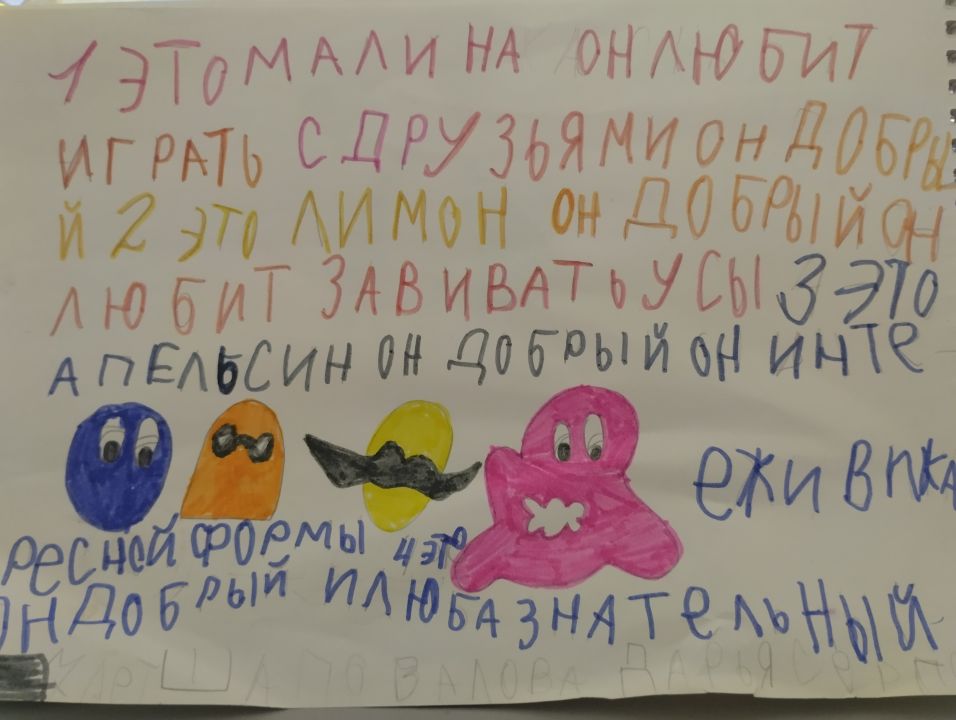 1 ЭТО МАЛИНА ОН ЛЮБИТ
ИГРАТЬ С ДРУЗЬЯМИ ОН ДОБРЫ
Й 2 ЭТО ЛИМОН ОН ДОБРЫЙ ОН
ЛЮБИТ ЗАВИВАТЬ УСЫ 3 ЭТО
АПЕЛЬСИН ОН ДОБРЫЙ ОН ИНТЕ
РЕСНОЙ ФОРМЫ 4 ЭТО
ЕЖИВИКА
ОН ДОБРЫЙ И ЛЮБАЗНАТЕЛЬНЫЙ
ШАПОВАЛОВА ДАРЬЯ